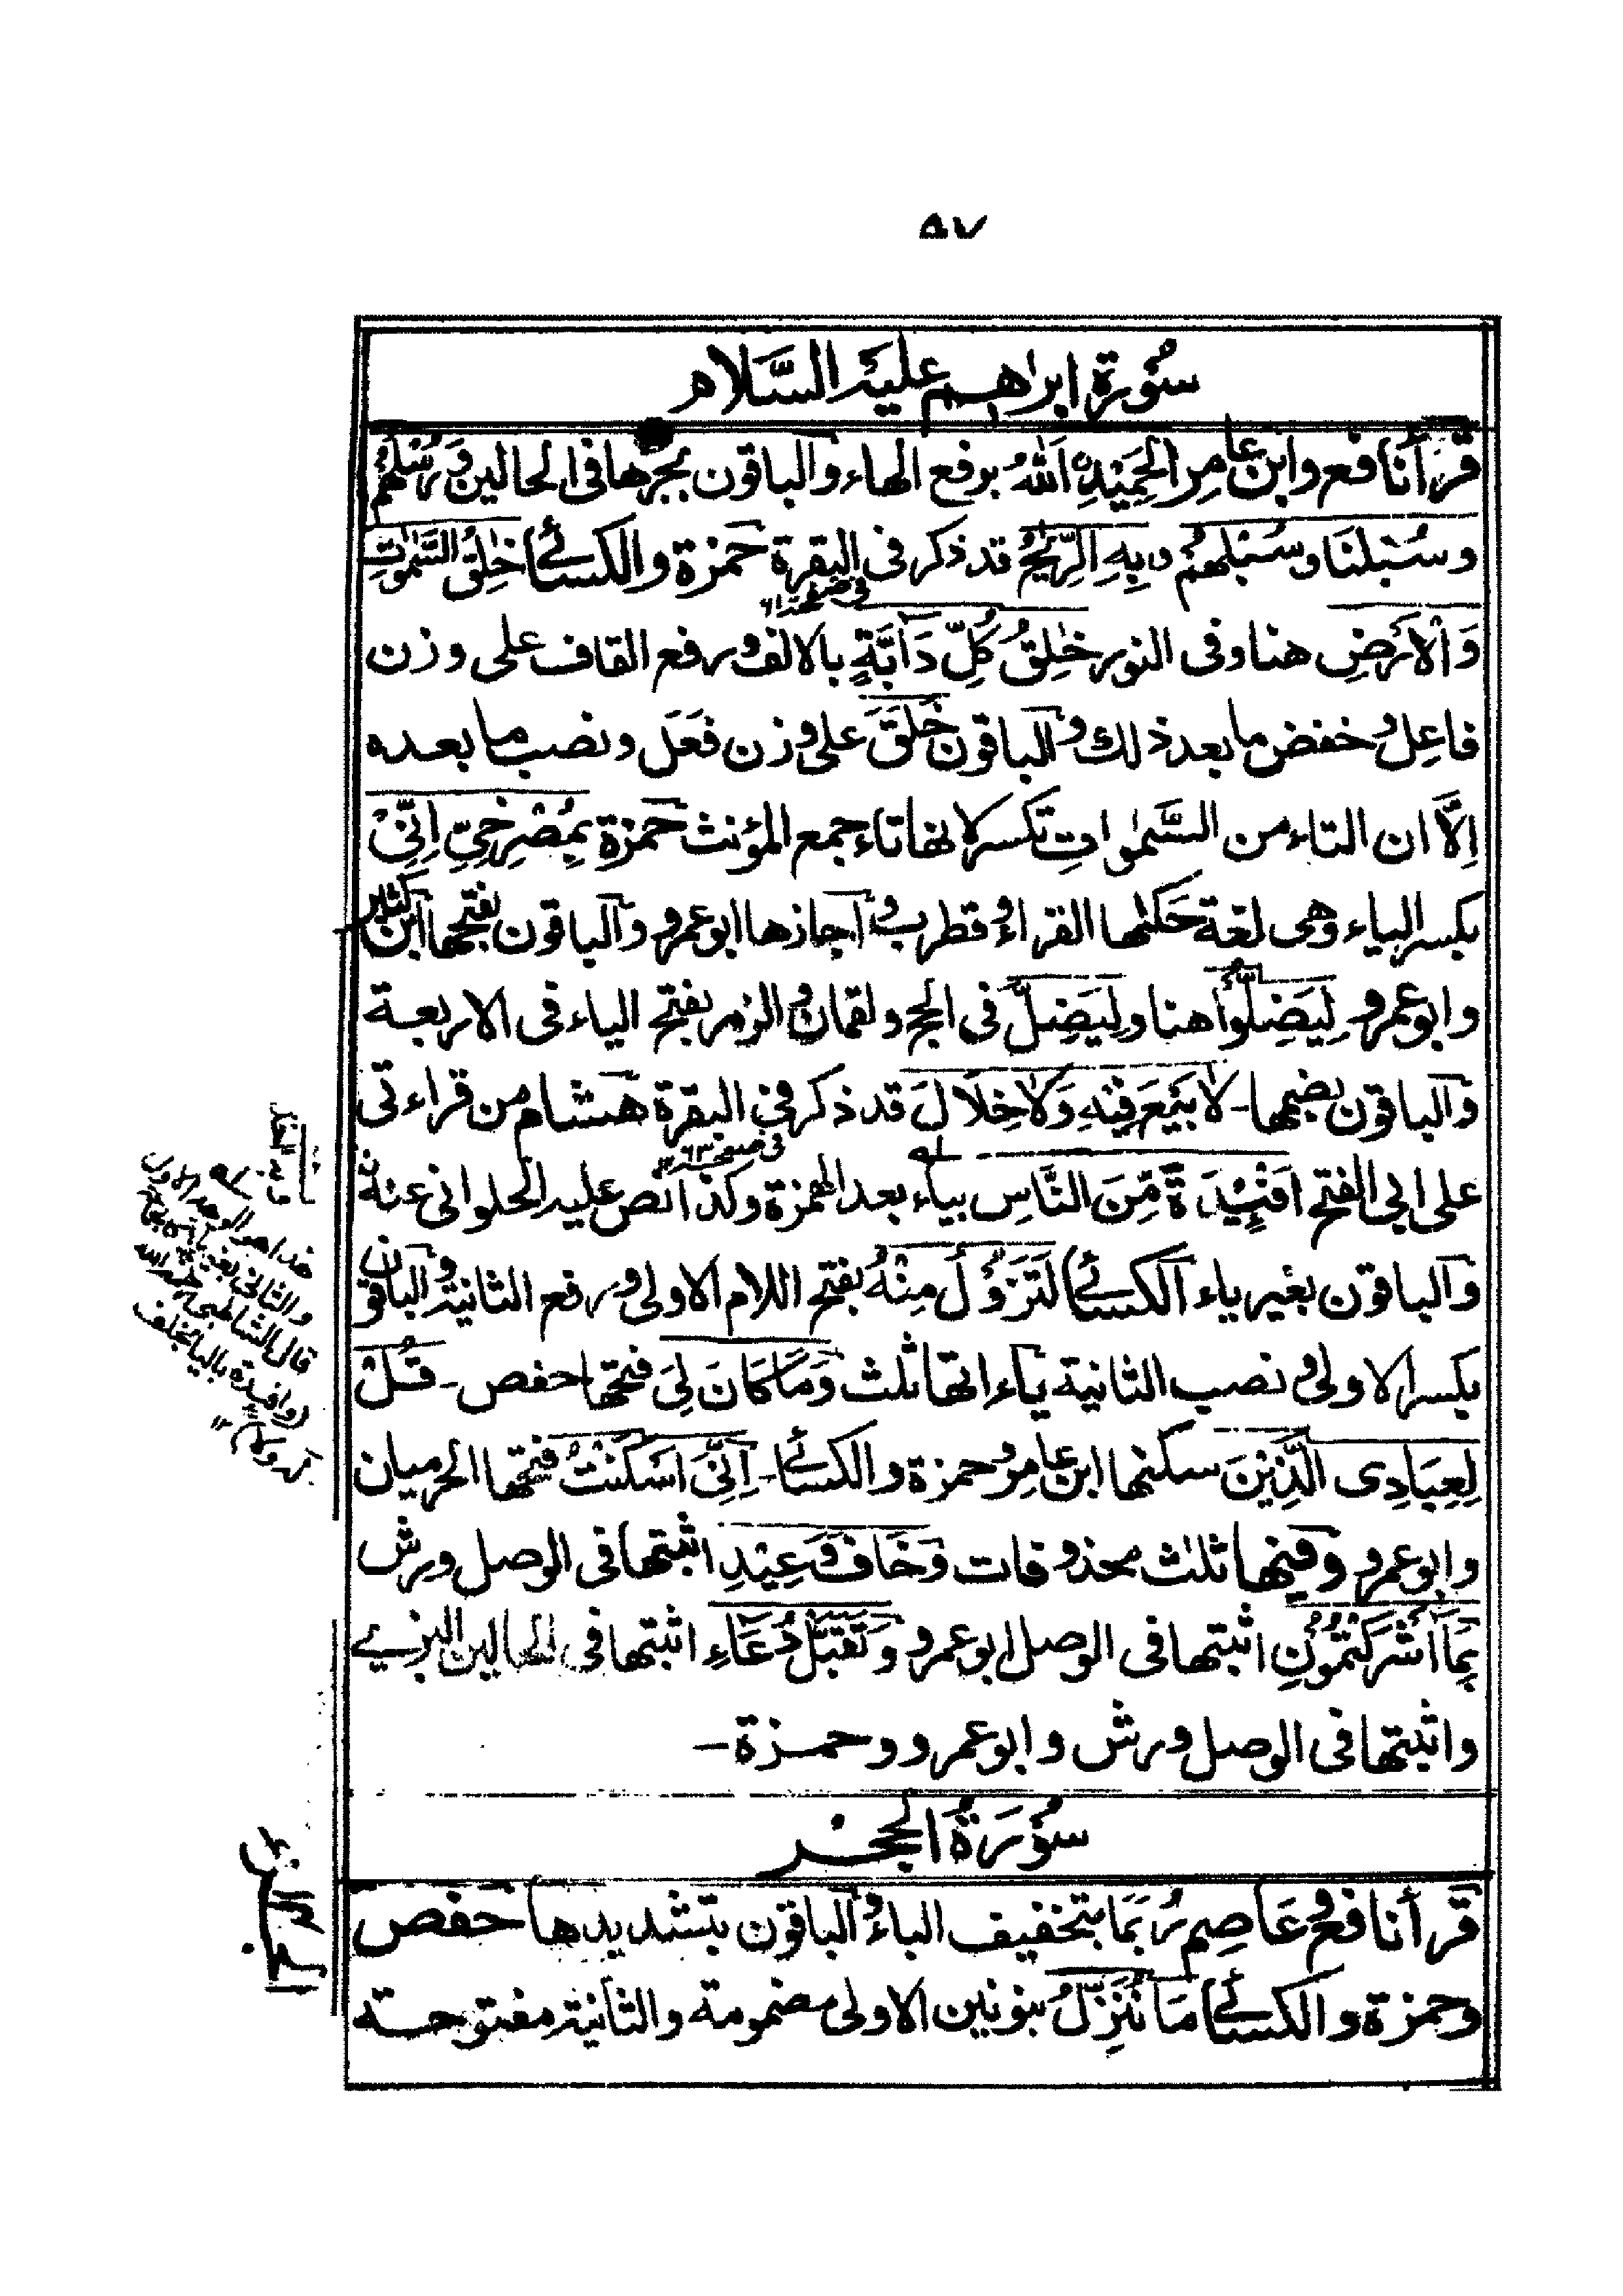 ۵۷
سُوْرة ابراهيم عليه السَّلام
قرأ نافع وابن عامر الحَمِيْدِ اَللّٰهُ برفع الهاء والباقون بجرّها فى الحالين وَرُسُلهُمْ
وسُبْلنَا وسُبْلهُمْ وبِهِ الرِّيْحُ قد ذكر فى البقرة حمزة والكسائى خٰلِقُ السَّمٰوٰتِ
فى صفحة ٦١
وَالْاَرْضِ هنا وفى النور خٰلِقُ كُلِّ دَآبَّةٍ بالالف ورفع القاف على وزن
فاعِل وخفض ما بعد ذلك والباقون خَلَقَ على وزن فَعَل ونصب ما بعده
اِلَّا ان التاء من السَّمٰوٰاتِ تكسر لانها تاء جمع المؤنث حمزة بِمُصْرِخِيِّ اِنِّيْ
بكسر الياء وهى لغة حكٰها الفراء وقطرب واجازها ابو عمرو والباقون بفتحها ابن كثير
وابو عمرو لِيَضِلُّوْا هنا ولِيَضِلَّ فى الحج ولقمان والزمر بفتح الياء فى الاربعة
والباقون بضمها - لَا بَيْعَ فِيْهِ وَلَا خِلَالَ قد ذكر فى البقرة هشام من قراءتى
فى صفحة ٦٣
على ابى الفتح اَفْئِيْدَةً مِّنَ النَّاسِ بياء بعد الهمزة وكذا نص عليه الحلوانى عنه
والباقون بغير ياء الكسائى لَتَزُوْلُ مِنْهُ بفتح اللام الاولى ورفع الثانية والباقون
بكسر الاولى ونصب الثانية ياءاتها ثلث وَمَا كَانَ لِيَ فتحها حفص - قُلْ
لِعِبَادِى الَّذِيْنَ سكنها ابن عامر وحمزة والكسائى - اِنِّيَ اَسْكَنْتُ فتحها الحرميان
وابو عمرو وفيها ثلٰث محذوفات وَخَافَ وَعِيْدِ اثبتها فى الوصل ورش
بِمَا اَشْرَكْتُمُوْنِ اثبتها فى الوصل ابو عمرو وَتَقَبَّلْ دُعَاءِ اثبتها فى الحالين البزى
واثبتها فى الوصل ورش وابو عمرو وحمزة -
سُوْرَةُ الحجْر
قرأ نافع وعَاصِم رُبَمَا بتخفيف الباء والباقون بتشديدها حفص
وحمزة والكسائى مَا نُنَزِّلُ بنونين الاولى مضمومة والثانية مفتوحة
هذا هو الوجه الاول
والثانى بغير ياء
قال الشاطبى رحمه الله
وافئدة باليا بخلف